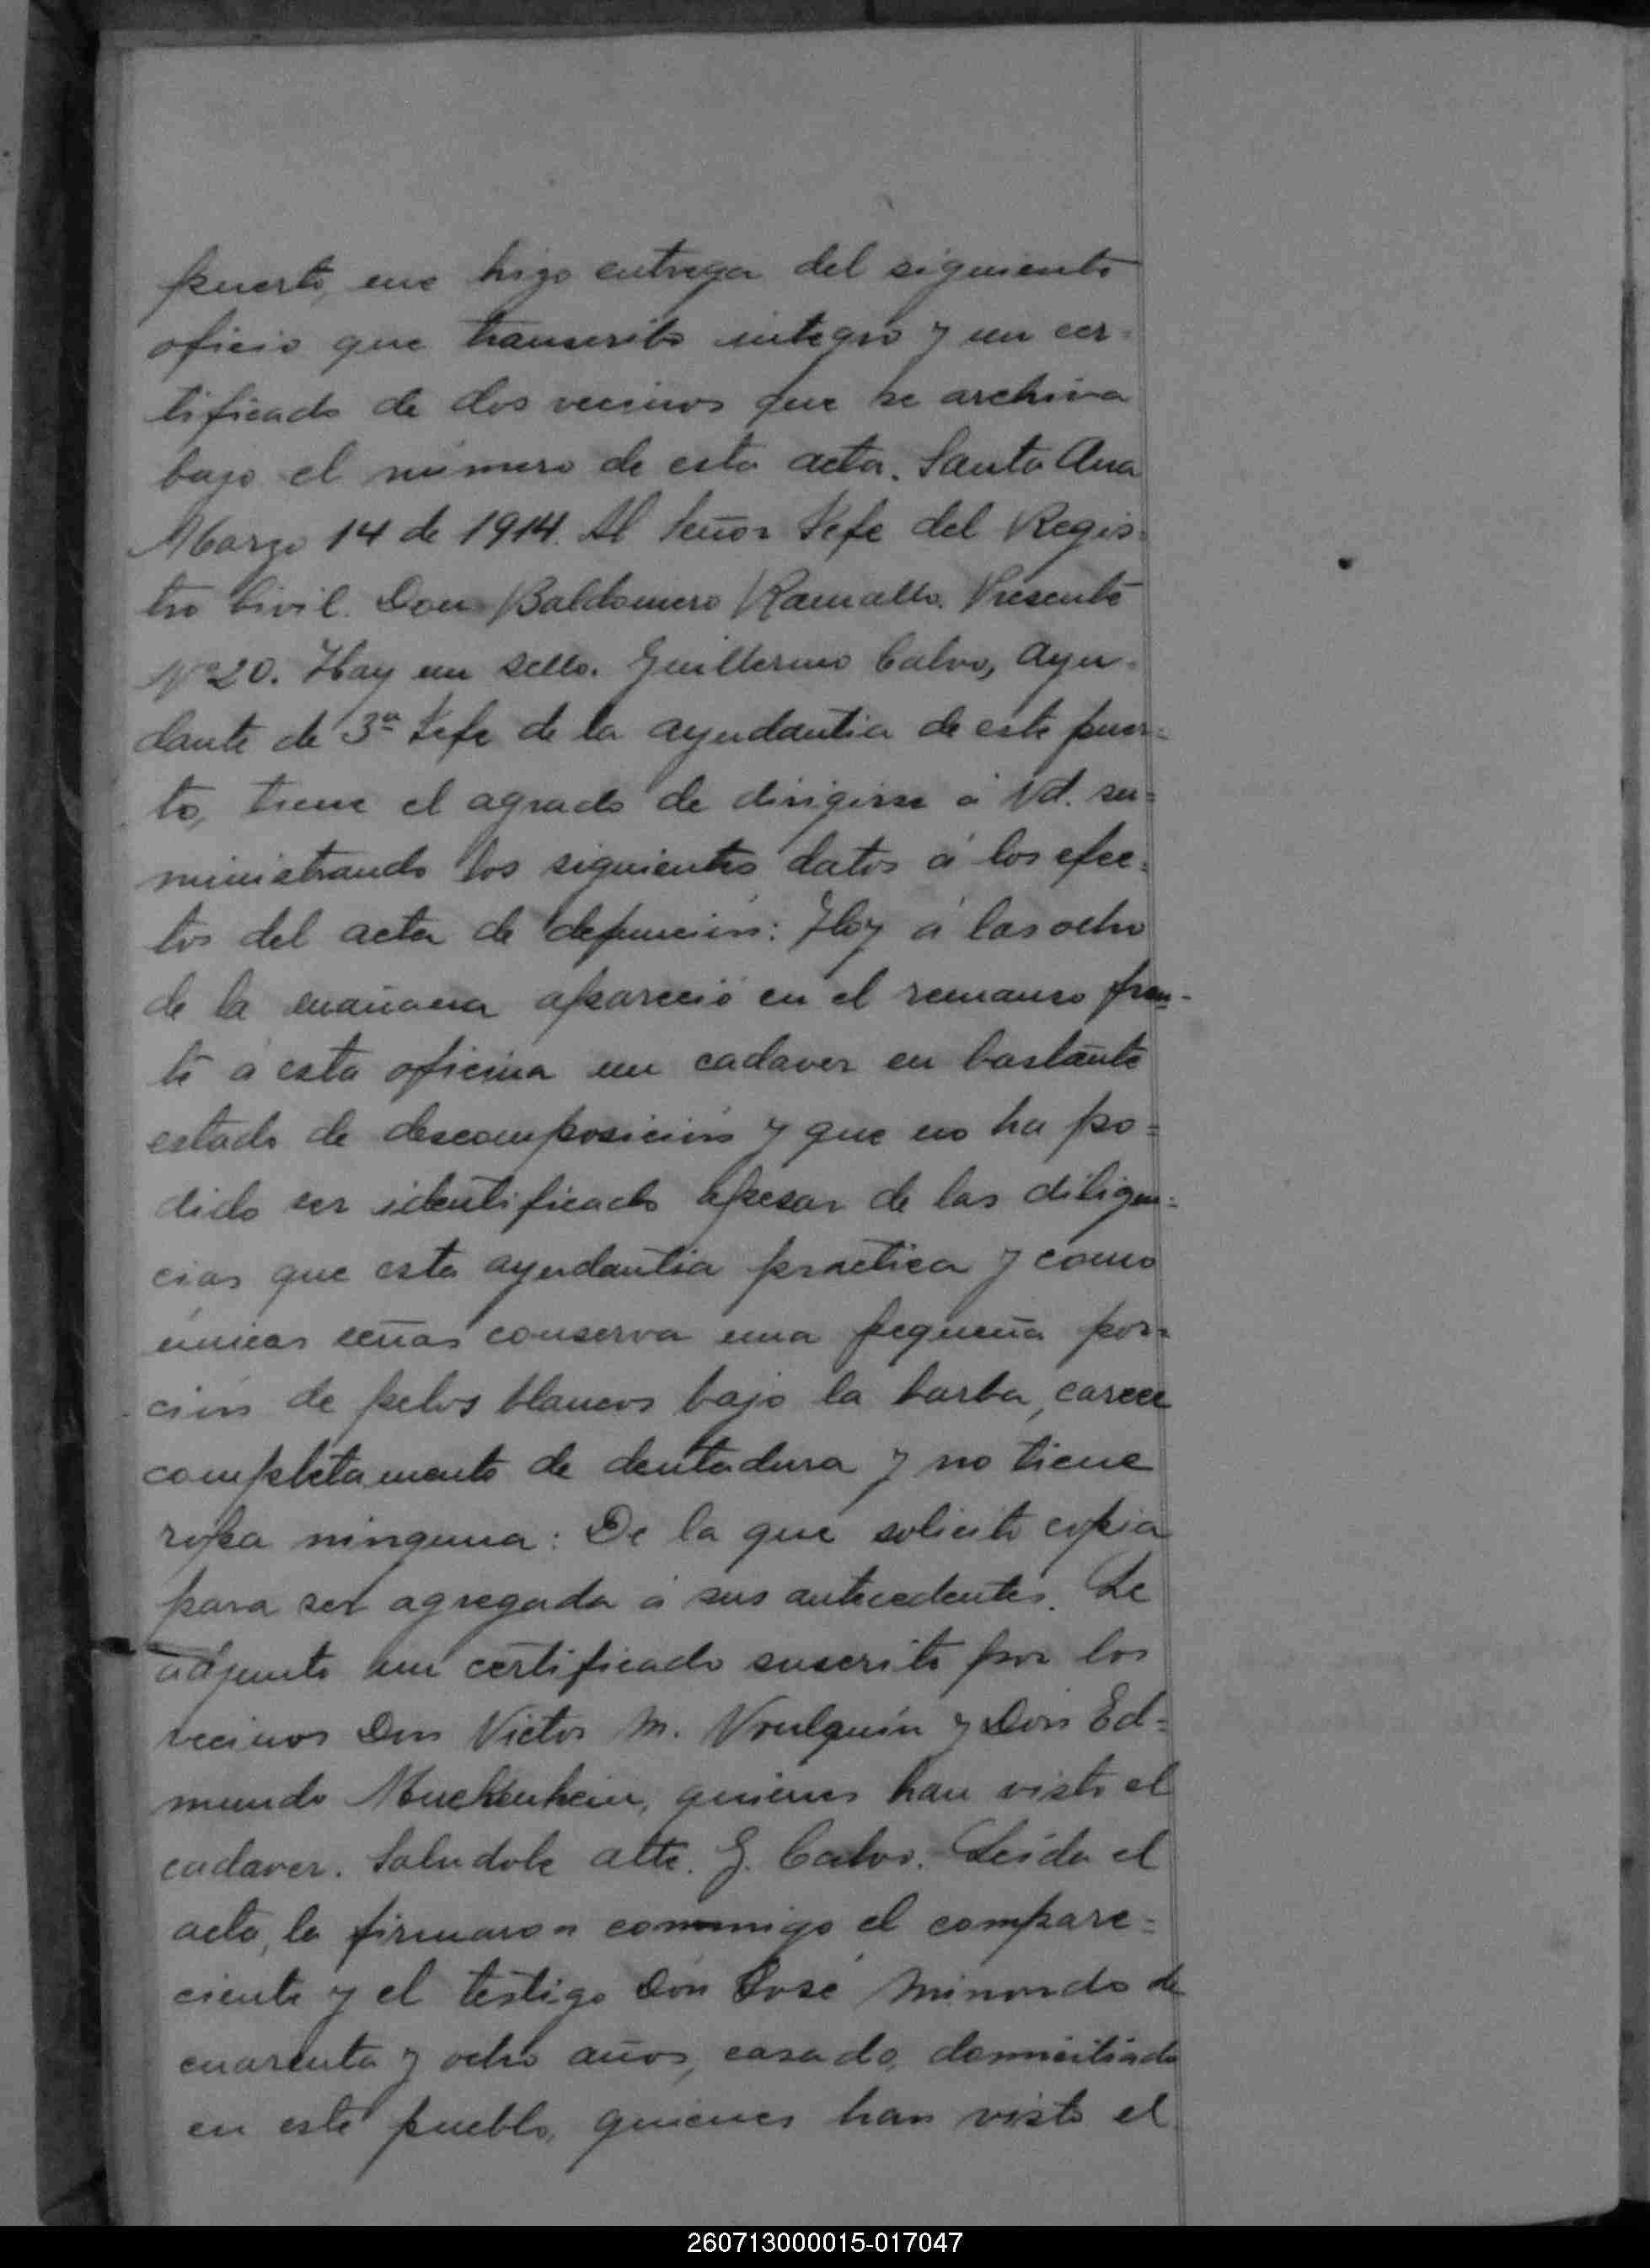 puerto, me hizo entrega del siguiente
oficio que transcribo integro y un cer-
tificado de dos vecinos que se archiva
bajo el número de esta acta. Santa Ana
Marzo 14 de 1914. Al Señor Jefe del Regis-
tro Civil. Don Baldomero Ramallo. Presente
Nº 20. Hay un sello. Guillermo Calvo, Ayu-
dante de 3ª Jefe de la ayudantia de este puer=
to, tiene el agrado de dirigirse á Vd. su=
ministrando los siguientes datos á los efec-
tos del acta de defunción: Hoy á las ocho
de la mañana apareció en el remanso fren-
te á esta oficina un cadaver en bastante
estado de descomposición y que no ha po=
dido ser identificado apesar de las diligen=
cias que esta ayudantia practica y como
únicas señas conserva una pequeña por=
ción de pelos blancos bajo la barba, carece
completamente de dentadura y no tiene
ropa ninguna: De la que solicito copia
para ser agregada á sus antecedentes. Le
adjunto un certificado suscrito por los
vecinos Don Victor M. Vrulquin y Don Ed=
mundo Muckenhein, quienes han visto el
cadaver. Saludole atte. G. Calvo. Leida el
acta, la firmaron conmigo el compare=
ciente y el testigo Don José Minondo de
cuarenta y ocho años, casado, domiciliado
en este pueblo, quienes han visto el
260713000015-017047